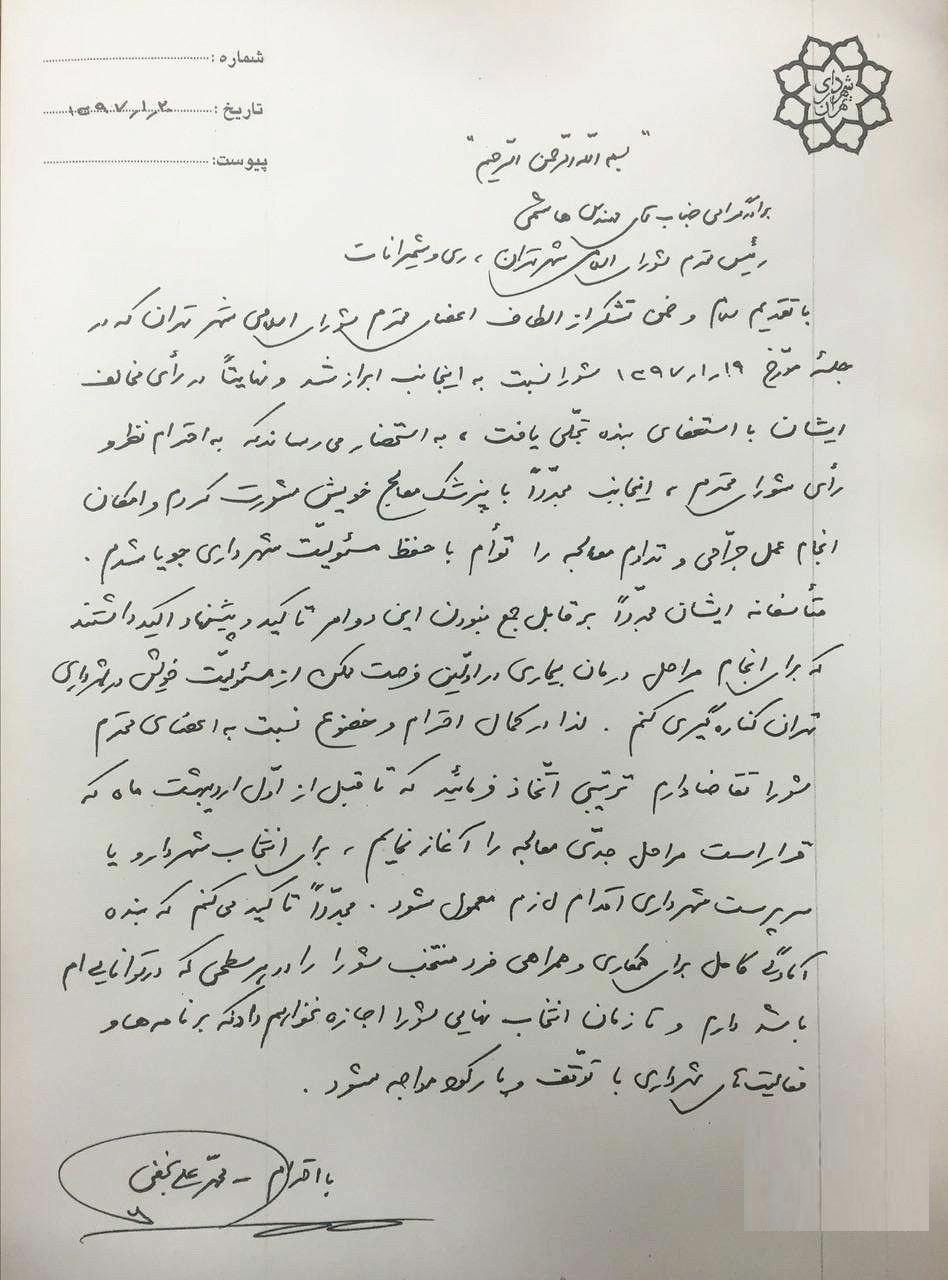 شهرداری تهران
شماره :
تاریخ : ۱۳۹۷/۱/۲۰
پیوست:
"بسم الله الرحمن الرحیم"
برادر گرامی جناب آقای مهندس هاشمی
رئیس محترم شورای اسلامی شهر تهران، ری و شمیرانات
با تقدیم سلام و ضمن تشکر از الطاف اعضای محترم شورای اسلامی شهر تهران که در
جلسهٔ مورّخ ۱۳۹۷/۱/۱۹ شورا نسبت به اینجانب ابراز شد و نهایتاً در رأی مخالف
ایشان با استعفای بنده تجلّی یافت، به استحضار می‌رساند که به احترام نظر و
رأی شورای محترم، اینجانب مجدّداً با پزشک معالج خویش مشورت کردم و امکان
انجام عمل جرّاحی و تداوم معالجه را توأم با حفظ مسئولیّت شهرداری جویا شدم.
متأسفانه ایشان مجدّداً بر قابل جمع نبودن این دو امر تاکید و پیشنهاد اکید داشتند
که برای انجام مراحل درمان بیماری در اوّلین فرصت ممکن از مسئولیّت خویش در شهرداری
تهران کناره‌گیری کنم. لذا در کمال احترام و خضوع نسبت به اعضای محترم
شورا تقاضا دارم ترتیبی اتّخاذ فرمائید که تا قبل از اوّل اردیبهشت ماه که
قرار است مراحل جدّی معالجه را آغاز نمایم، برای انتخاب شهردار و یا
سرپرست شهرداری اقدام لازم معمول شود. مجدّداً تاکید می‌کنم که بنده
آمادگی کامل برای همکاری و همراهی فرد منتخب شورا را در هر سطحی که در توانایی‌ام
باشد دارم و تا زمان انتخاب نهایی شورا اجازه نخواهم داد که برنامه‌ها و
فعالیت‌های شهرداری با توقّف و یا رکود مواجه شود.
با احترام - محمّد علی نجفی